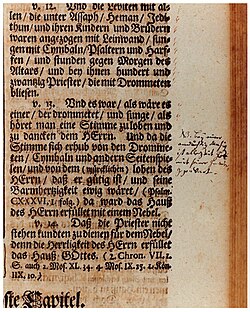 v. 12. Und die Leviten mit al-
len / die unter Assaph / Heman / Jedi-
thun / und ihren Kindern und Brüdern
waren angezogen mit Leinwand / sun-
gen mit Cymbaln / Psaltern und Harf-
fen / und stunden gegen Morgen des
Altars / und bey ihnen hundert und
zwantzig Priester / die mit Drommeten
bliesen.
v. 13. Und es war / als wäre es
einer / der drommetet / und sünge / als
höret man eine Stimme zu loben und
zu dancken dem HErrn. Und da die
Stimme sich erhub von den Dromme-
ten / Cymbaln und andern Seitenspie-
len / und von dem (würcklichen) loben des
HErrn / daß er gütig ist / und seine
Barmhertzigkeit ewig wäret / (Psalm.
CXXXVI. 1. folg.) da ward das Hauß
des HErrn erfüllet mit einem Nebel.
v. 14. Daß die Priester nicht
stehen kundten zu dienen für dem Nebel /
denn die Herrligkeit des HErrn erfüllet
das Hauß GOttes. (2. Chron. VII. 1.
S. auch 2. Mos. XL. 34. 4. Mos. IX. 15. 1. Kön.
IIX. 10.)
ste Capitel.